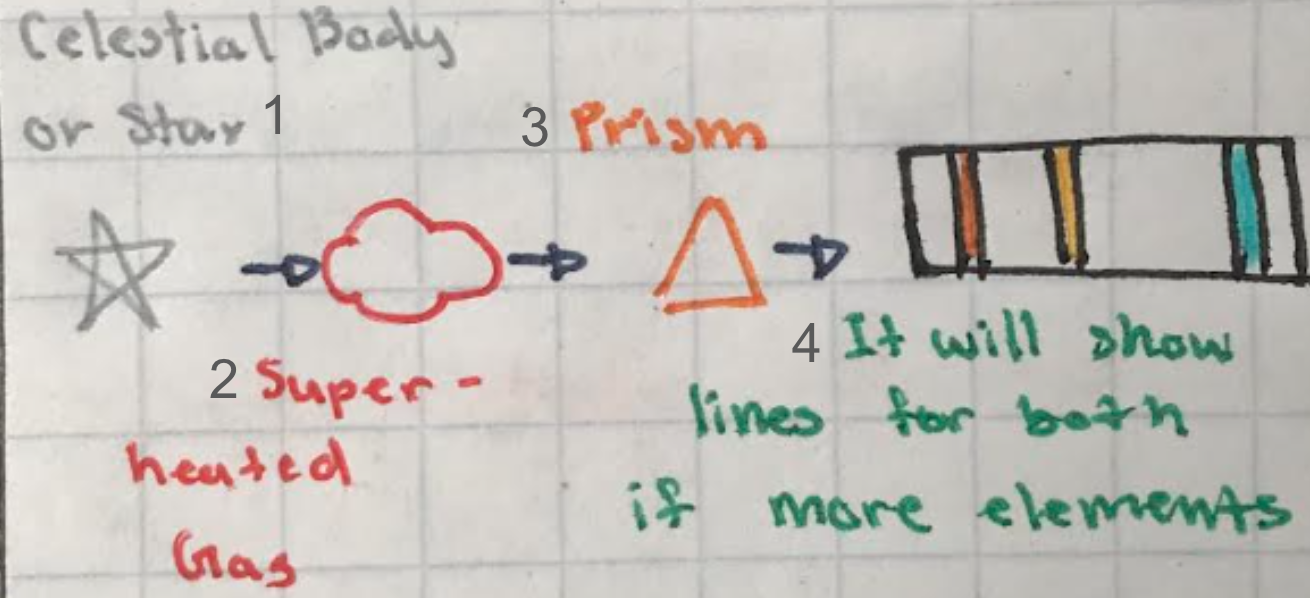 Celestial Body
or Star 1
3 Prism
2 Super-
heated
Gas
4 It will show
lines for both
if more elements